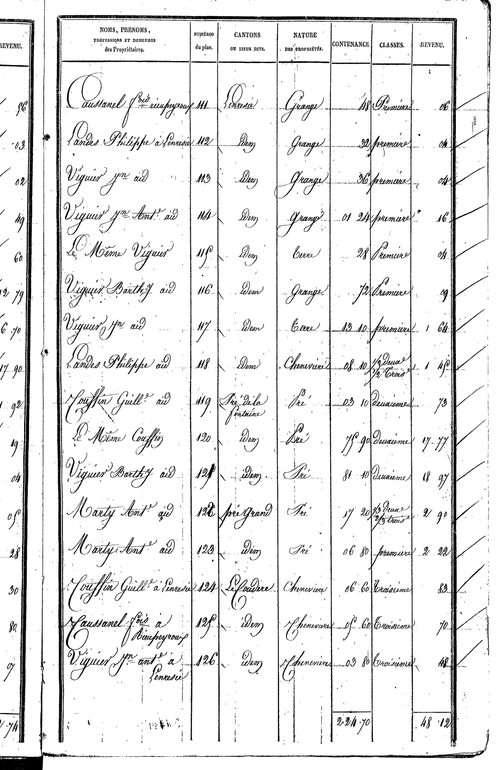 REVENU.
96
03
02
49
60
12 79
6 70
17 90
1 92
19
04
05
28
30
80
07
74
NOMS, PRÉNOMS,
PROFESSIONS ET DEMEURES
des Propriétaires.
NUMÉROS
du plan.
CANTONS
OU LIEUX DITS.
NATURE
DES PROPRIÉTÉS.
CONTENANCE
CLASSES.
REVENU.
Caussanel fcois rieupeyroux 111 Grange 48 Premiere 06
Landes Philippe à 112 idem Grange 32 premiere 04
Viguier Jn aid 113 idem Grange 36 premiere 04
Viguier Jn Ante aid 114 idem Grange 01 24 premiere 16
Le Même Viguier 115 idem Terre 28 Premiere 04
Viguier Barthy aid 116 idem Grange 72 Premiere 09
Viguier Jn aid 117 idem Terre 13 10 premiere 1 64
Landes Philippe aid 118 idem Cheneviere 08 10 1/2 deuxe 1/2 Troise 1 45
Couffin Guille aid 119 Pré de la fontaine Pré 03 10 deuxieme 73
Le Même Couffin 120 idem Pré 75 90 deuxieme 17 77
Viguier Barthy aid 121 idem Pré 81 10 Deuxieme 18 97
Marty Ante aid 122 pré Grand Pré 17 20 1/3 deuxe 2/3 trois 2 90
Marty Ante aid 123 idem Pré 06 80 premiere 2 22
Couffin Guille à 124 Cheneviere 06 60 Troisieme 83
Caussanel fcois à Rieupeyroux 125 idem Cheneviere 05 60 Troisieme 70
Viguier Jn ante à 126 idem Cheneviere 03 80 Troisieme 48
2 24 70
48 12